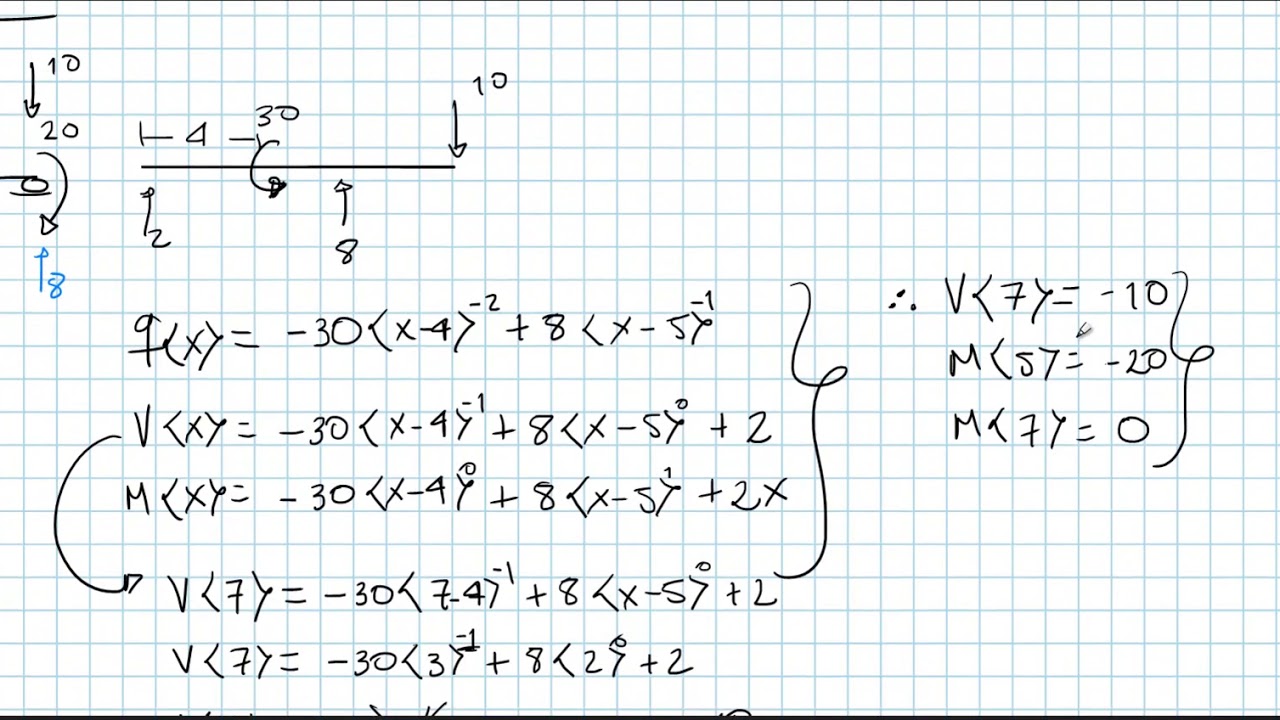 10
20
0
8
10
30
⊢ 4 –
2
8
q<x> = -30<x-4>⁻² + 8<x-5>⁻¹
V<x> = -30<x-4>⁻¹ + 8<x-5>⁰ + 2
M<x> = -30<x-4>⁰ + 8<x-5>¹ + 2x
V<7> = -30<7-4>⁻¹ + 8<x-5>⁰ + 2
V<7> = -30<3>⁻¹ + 8<2>⁰ + 2
∴ V<7> = -10
M<5> = -20
M<7> = 0